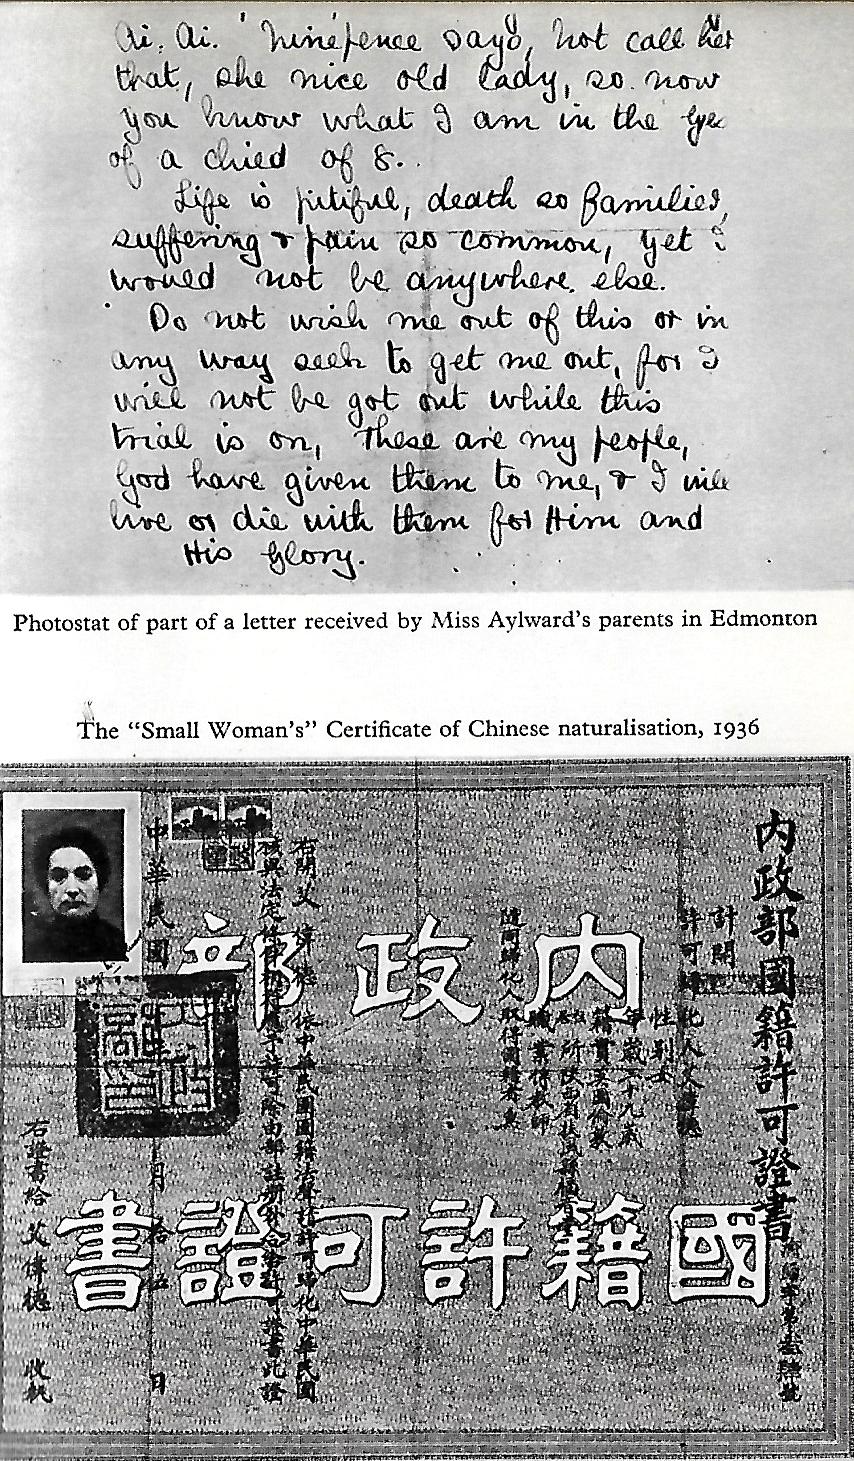 Ai. Ai. Ninepence says, not call her
that, she nice old lady, so now
you know what I am in the eye
of a child of 8.
Life is pitiful, death so familier,
suffering & pain so common, yet I
would not be anywhere else.
Do not wish me out of this or in
any way seek to get me out, for I
will not be got out while this
trial is on, These are my people,
God have given them to me, & I will
live or die with them for Him and
His Glory.
Photostat of part of a letter received by Miss Aylward's parents in Edmonton
The "Small Woman's" Certificate of Chinese naturalisation, 1936
內政部國籍許可證書
計開
許可歸化人艾偉德
性別女
年歲三十九歲
籍貫英國倫敦
職業傳教師
隨同歸化人取得國籍者無
內政部
國籍許可證書
右開艾偉德依中華民國國籍法聲請許可歸化中華民國
中華民國
月拾五日
右證書給艾偉德收執